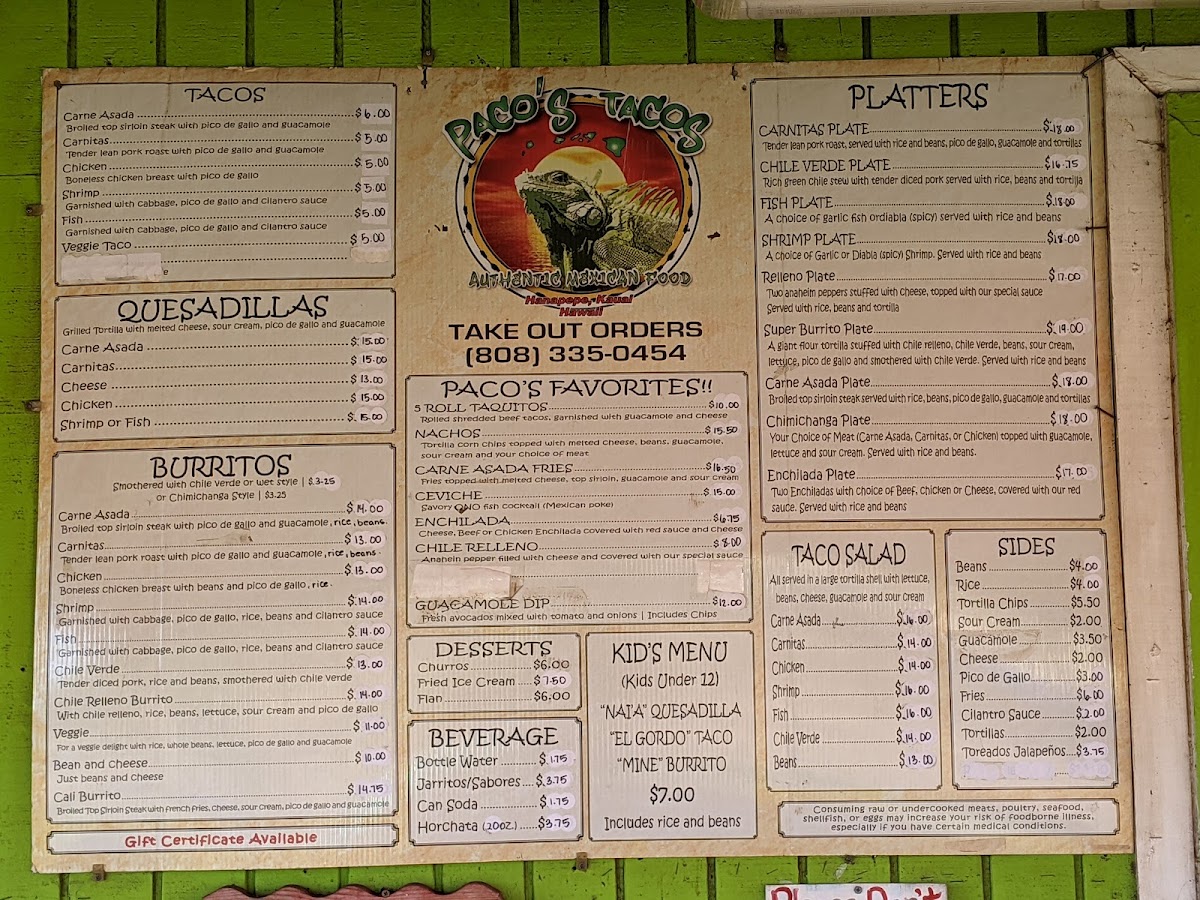 TACOS
Carne Asada $6.00
Broiled top sirloin steak with pico de gallo and guacamole
Carnitas $5.00
Tender lean pork roast with pico de gallo and guacamole
Chicken $5.00
Boneless chicken breast with pico de gallo
Shrimp $5.00
Garnished with cabbage, pico de gallo and cilantro sauce
Fish $5.00
Garnished with cabbage, pico de gallo and cilantro sauce
Veggie Taco $5.00
QUESADILLAS
Grilled Tortilla with melted cheese, sour cream, pico de gallo and guacamole
Carne Asada $15.00
Carnitas $15.00
Cheese $13.00
Chicken $15.00
Shrimp or Fish $15.00
BURRITOS
Smothered with chile verde or wet style | $3.25
or Chimichanga Style | $3.25
Carne Asada $14.00
Broiled top sirloin steak with pico de gallo and guacamole, rice, beans.
Carnitas $13.00
Tender lean pork roast with pico de gallo and guacamole, rice, beans.
Chicken $13.00
Boneless chicken breast with beans and pico de gallo, rice.
Shrimp $14.00
Garnished with cabbage, pico de gallo, rice, beans and cilantro sauce
Fish $14.00
Garnished with cabbage, pico de gallo, rice, beans and cilantro sauce
Chile Verde $13.00
Tender diced pork, rice and beans, smothered with chile verde
Chile Relleno Burrito $14.00
With chile relleno, rice, beans, lettuce, sour cream and pico de gallo
Veggie $11.00
For a veggie delight with rice, whole beans, lettuce, pico de gallo and guacamole
Bean and cheese $10.00
Just beans and cheese
Cali Burrito $14.75
Broiled Top Sirloin Steak with french fries, cheese, sour cream, pico de gallo and guacamole
Gift Certificate Available
PACO'S TACOS
AUTHENTIC MEXICAN FOOD
Hanapepe, Kauai
Hawaii
TAKE OUT ORDERS
(808) 335-0454
PACO'S FAVORITES!!
5 ROLL TAQUITOS $10.00
Rolled shredded beef tacos, garnished with guacamole and cheese
NACHOS $15.50
Tortilla corn chips topped with melted cheese, beans, guacamole,
sour cream and your choice of meat
CARNE ASADA FRIES $16.50
Fries topped with melted cheese, top sirloin, guacamole and sour cream
CEVICHE $15.00
Savory ONO fish cocktail (Mexican poke)
ENCHILADA $6.75
Cheese, Beef or Chicken Enchilada covered with red sauce and Cheese
CHILE RELLENO $8.00
Anahein pepper filled with Cheese and covered with our special sauce
GUACAMOLE DIP $12.00
Fresh avocados mixed with tomato and onions | Includes Chips
DESSERTS
Churros $6.00
Fried Ice Cream $7.50
Flan $6.00
BEVERAGE
Bottle Water $1.75
Jarritos/Sabores $3.75
Can Soda $1.75
Horchata (20oz.) $3.75
KID'S MENU
(Kids Under 12)
"NAI'A" QUESADILLA
"EL GORDO" TACO
"MINE" BURRITO
$7.00
Includes rice and beans
PLATTERS
CARNITAS PLATE $18.00
Tender lean roast, served with rice and beans, pico de gallo, guacamole and tortillas
CHILE VERDE PLATE $16.75
Rich green chile stew with tender diced pork served with rice, beans and tortilla
FISH PLATE $18.00
A choice of garlic fish ordiabla (spicy) served with rice and beans
SHRIMP PLATE $18.00
A choice of Garlic or Diabla (spicy) Shrimp. Served with rice and beans
Relleno Plate $17.00
Two anaheim peppers stuffed with cheese, topped with our special sauce
Served with rice, beans and tortilla
Super Burrito Plate $19.00
A giant flour tortilla stuffed with chile relleno, chile verde, beans, sour cream,
lettuce, pico de gallo and smothered with chile verde. Served with rice and beans
Carne Asada Plate $18.00
Broiled top sirloin steak served with rice, beans, pico de gallo, guacamole and tortillas
Chimichanga Plate $18.00
Your Choice of Meat (Carne Asada, Carnitas, or Chicken) topped with guacamole,
lettuce and sour cream. Served with rice and beans.
Enchilada Plate $17.00
Two Enchiladas with choice of Beef, chicken or Cheese, covered with our red
sauce. Served with rice and beans
TACO SALAD
All served in a large tortilla shell with lettuce,
beans, cheese, guacamole and sour cream
Carne Asada $16.00
Carnitas $14.00
Chicken $14.00
Shrimp $16.00
Fish $16.00
Chile Verde $14.00
Beans $13.00
SIDES
Beans $4.00
Rice $4.00
Tortilla Chips $5.50
Sour Cream $2.00
Guacamole $3.50
Cheese $2.00
Pico de Gallo $3.00
Fries $6.00
Cilantro Sauce $2.00
Tortillas $2.00
Toreados Jalapeños $3.75
Consuming raw or undercooked meats, poultry, seafood,
shellfish, or eggs may increase your risk of foodborne illness,
especially if you have certain medical conditions.
Please Don't